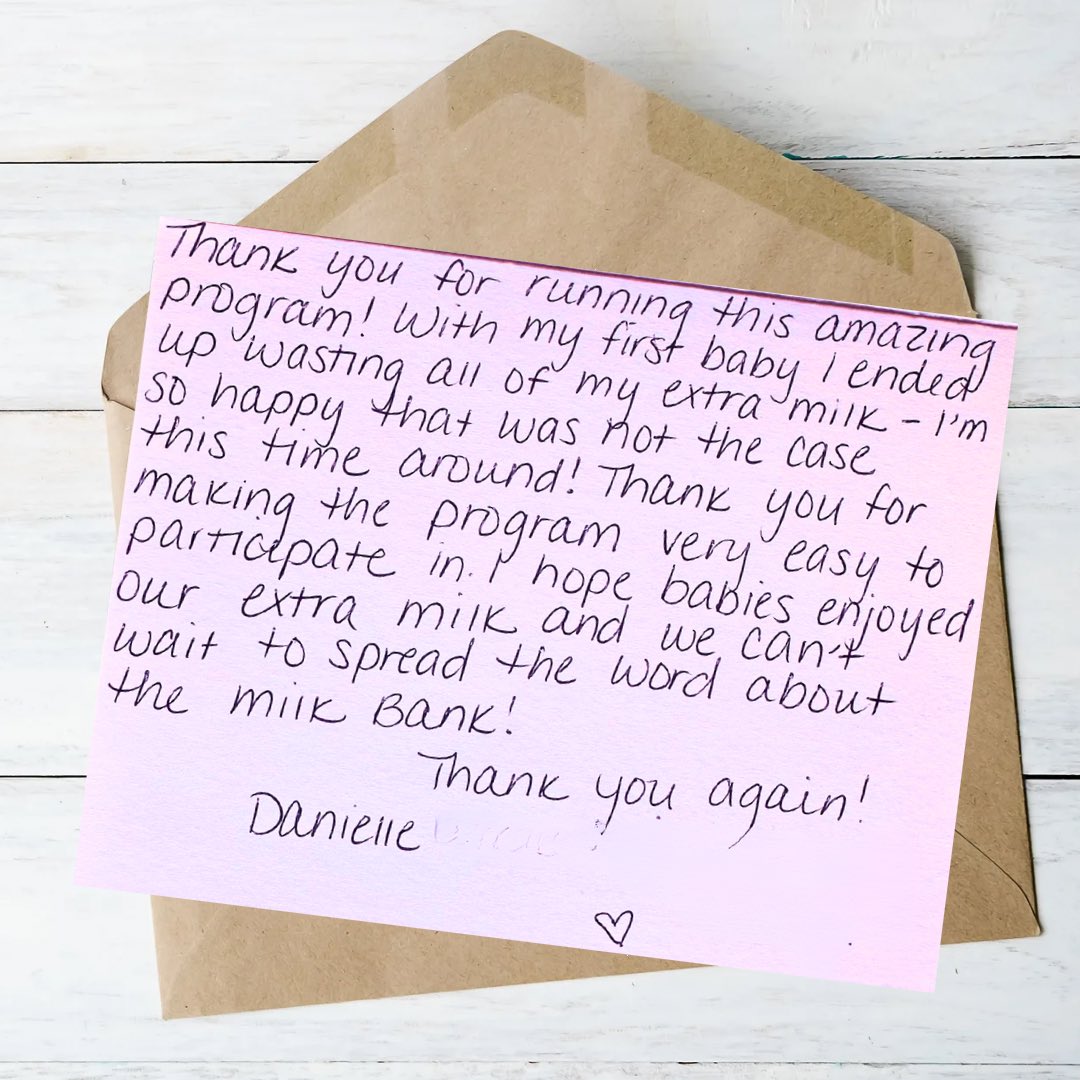 Thank you for running this amazing
program! With my first baby I ended
up wasting all of my extra milk - I'm
so happy that was not the case
this time around! Thank you for
making the program very easy to
participate in. I hope babies enjoyed
our extra milk and we can't
wait to spread the word about
the milk Bank!
Thank you again!
Danielle